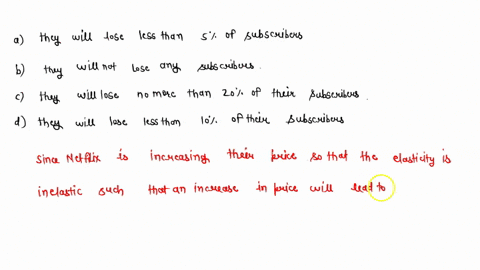 a) they will lose less than 5% of subscribers
b) they will not lose any subscribers.
c) they will lose no more than 20% of their subscribers.
d) they will lose less than 10% of their subscribers
Since Netflix is increasing their price so that the elasticity is
inelastic such that an increase in price will lead to